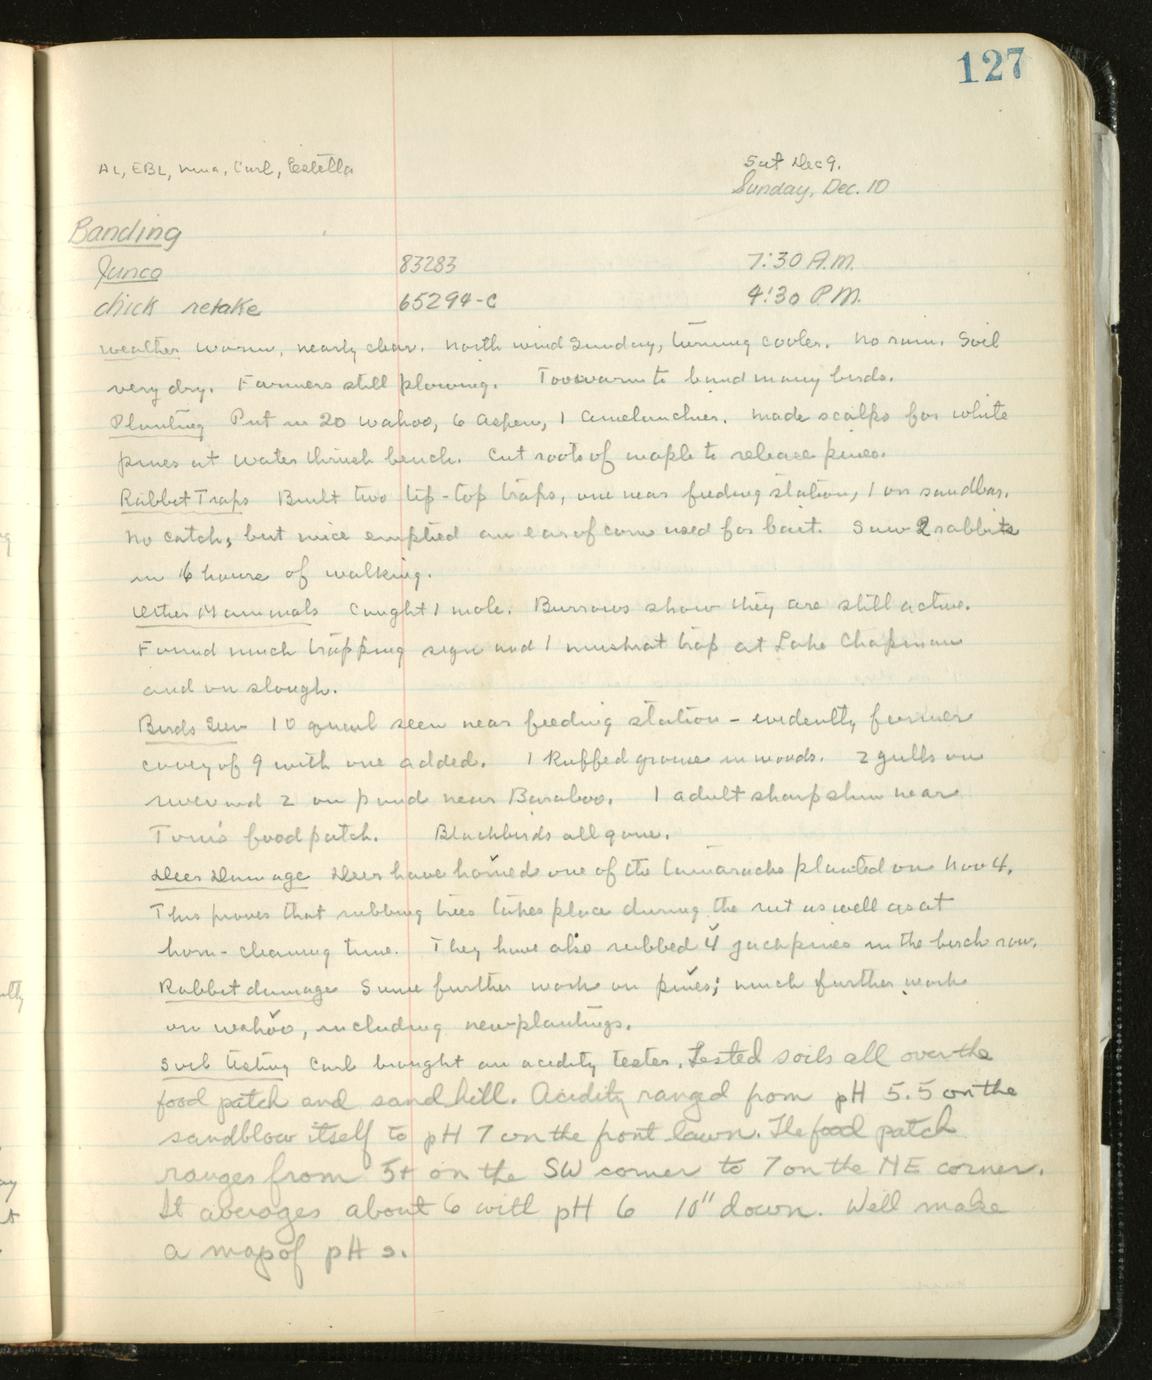 127
AL, EBL, Nina, Carl, Estella
Sat Dec 9.
Sunday, Dec. 10
Banding
Junco 83283 7:30 A.M.
chick retake 65294-C 4:30 P.M.
Weather Warm, nearly clear. North wind Sunday, turning cooler. No rain. Soil
very dry. Farmers still plowing. Too warm to band many birds.
Planting Put in 20 Wahoo, 6 Aspen, 1 Amelanchier. Made scalps for white
pines at Water thrush bench. Cut roots of maple to release pines.
Rabbit Traps Built two tip-top traps, one near feeding station, 1 on sandbar.
No catch, but mice emptied an ear of corn used for bait. Saw 2 rabbits
in 6 hours of walking.
Other Mammals Caught 1 mole. Burrows show they are still active.
Found much trapping sign and 1 muskrat trap at Lake Chapman
and on slough.
Birds Seen 10 quail seen near feeding station - evidently former
covey of 9 with one added. 1 Ruffed grouse in woods. 2 gulls on
river and 2 on pond near Baraboo. 1 adult sharpshin near
Tom's food patch. Blackbirds all gone.
Deer Damage Deer have horned one of the tamaracks planted on Nov 4.
This proves that rubbing trees takes place during the rut as well as at
horn-cleaning time. They have also rubbed 4 jackpines in the birch row.
Rabbit damage Some further work on pines; much further work
on wahoo, including new plantings.
Soil testing Carl brought an acidity tester. Tested soils all over the
food patch and sand hill. Acidity ranged from pH 5.5 on the
sandblow itself to pH 7 on the front lawn. The food patch
ranges from 5+ on the SW corner to 7 on the NE corner.
It averages about 6 with pH 6 10" down. Well make
a map of pH s.